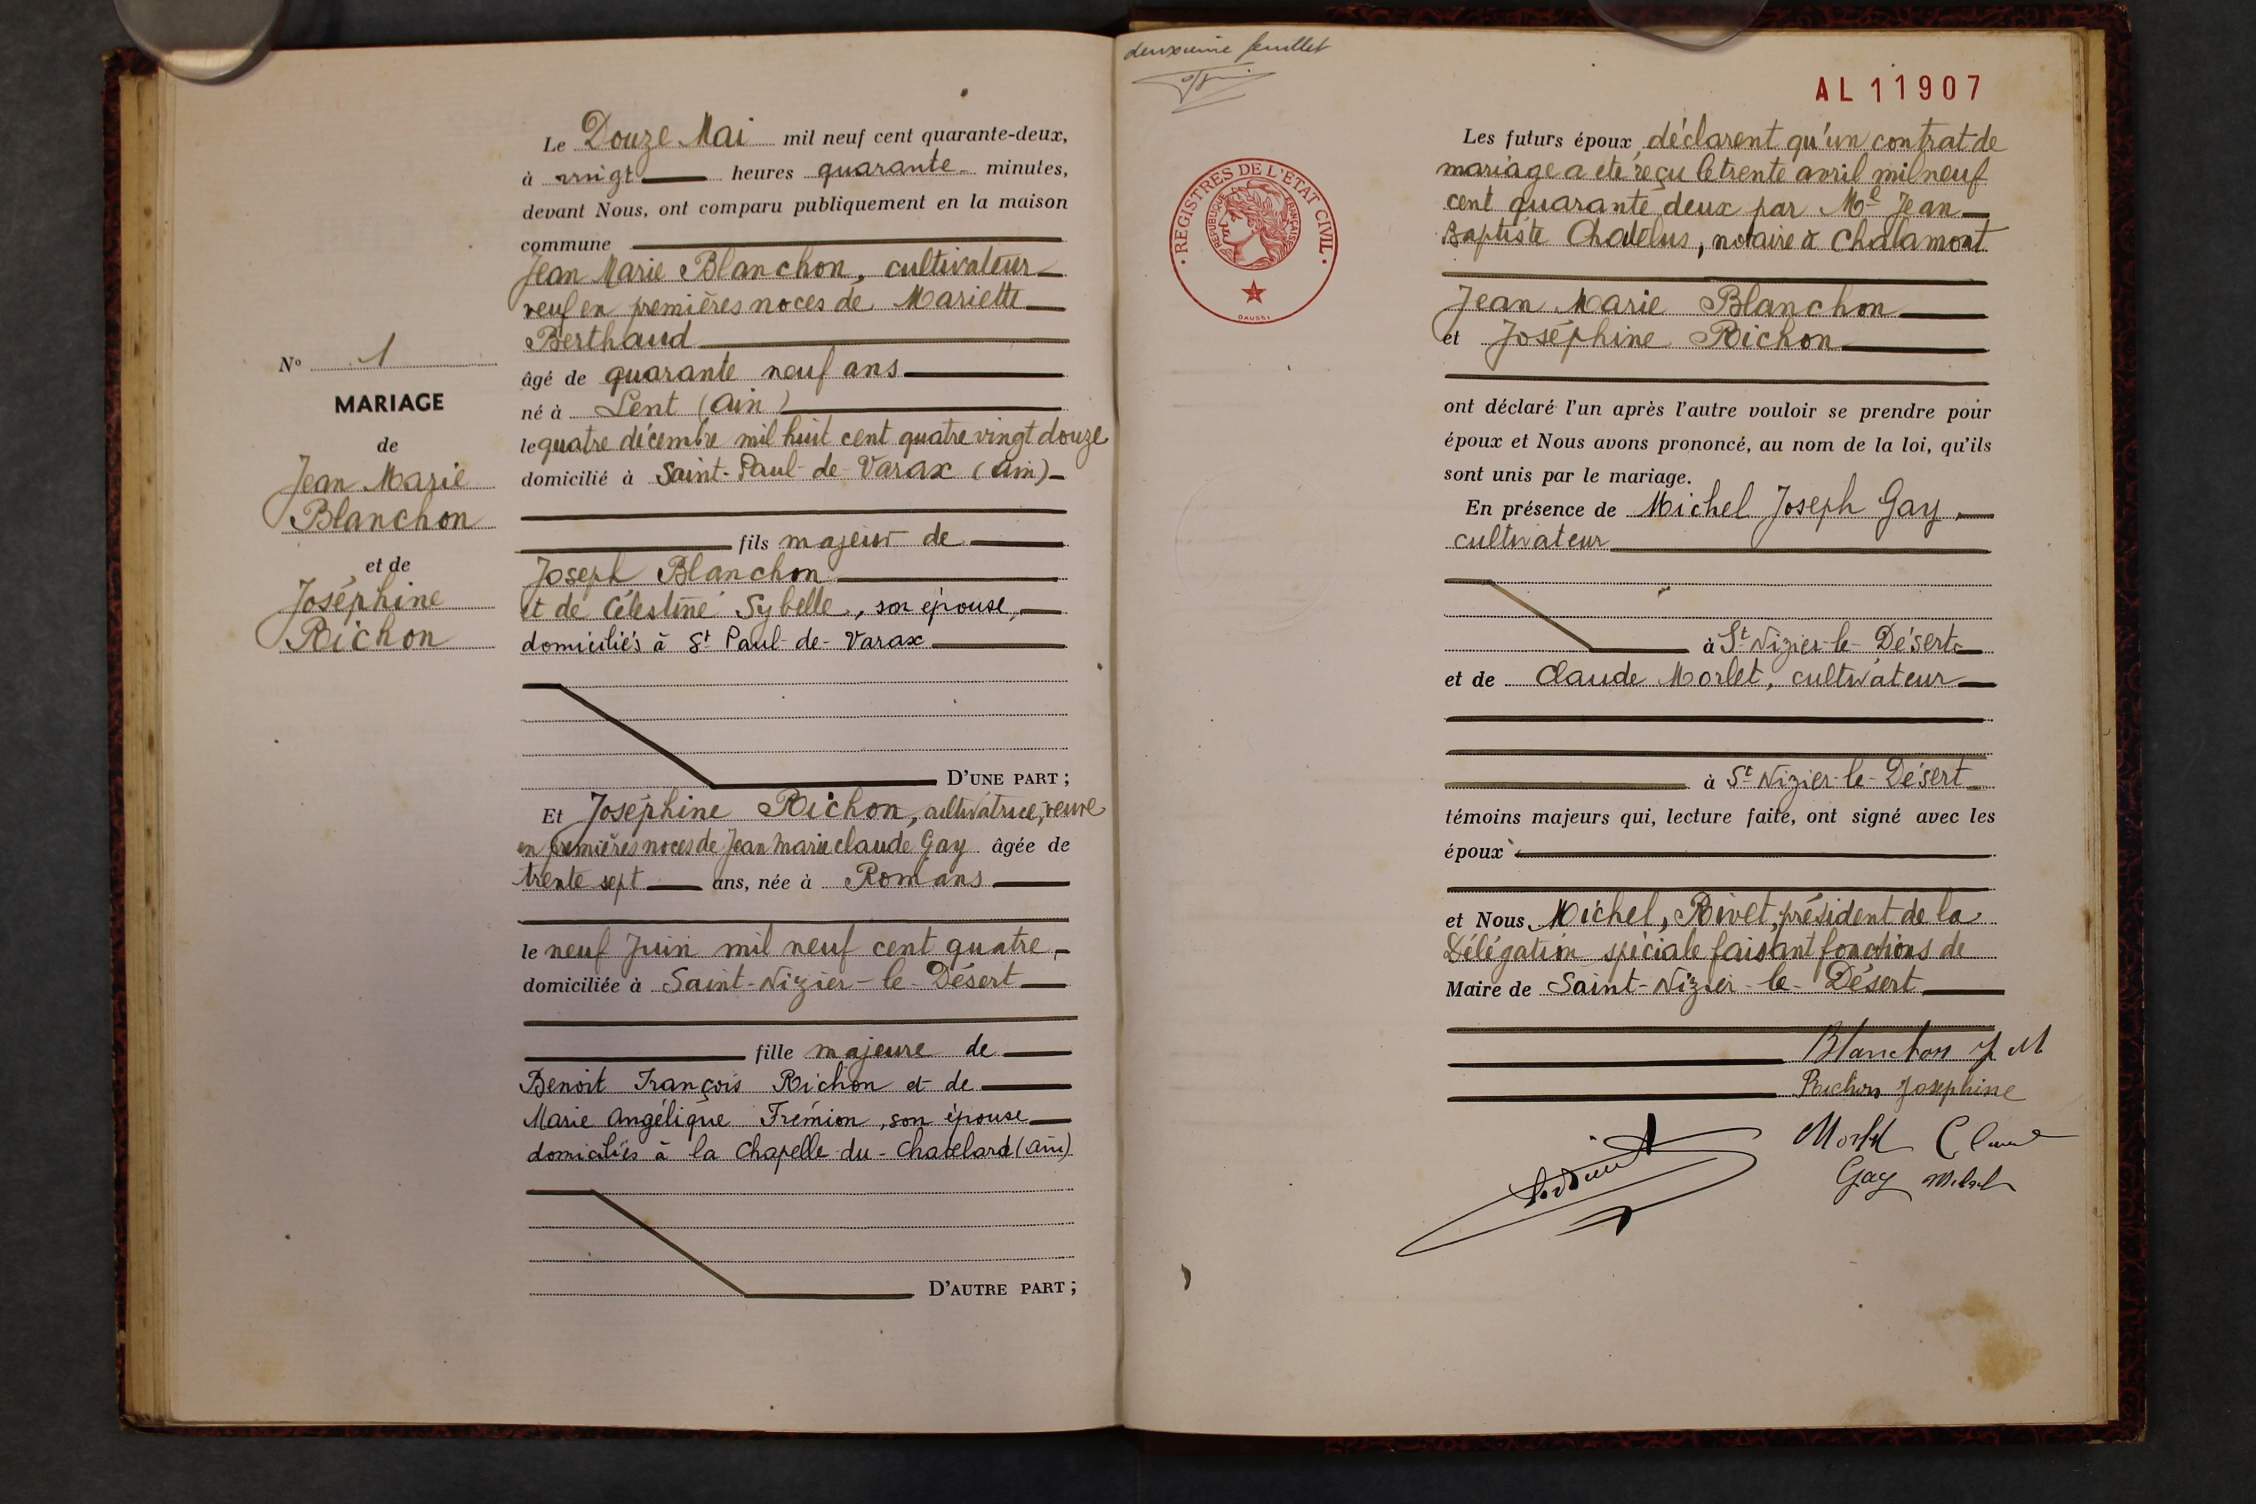 Le Douze Mai mil neuf cent quarante-deux,
à vingt heures quarante minutes,
devant Nous, ont comparu publiquement en la maison
commune
Jean Marie Blanchon, cultivateur
veuf en premières noces de Mariette
Berthaud
âgé de quarante neuf ans
né à Lent (Ain)
le quatre décembre mil huit cent quatre vingt douze
domicilié à Saint-Paul-de-Varax (Ain)
fils majeur de
Joseph Blanchon
et de Célestine Sybelle, son épouse,
domiciliés à St Paul-de-Varax
D'UNE PART ;
Et Joséphine Richon, cultivatrice, veuve
en premières noces de Jean Marie Claude Gay âgée de
trente sept ans, née à Romans
le neuf Juin mil neuf cent quatre
domiciliée à Saint-Nizier-le-Désert
fille majeure de
Benoit François Richon et de
Marie Angélique Frémion, son épouse
domiciliés à la Chapelle-du-Chatelard (Ain)
D'AUTRE PART ;
N° 1
MARIAGE
de
Jean Marie
Blanchon
et de
Joséphine
Richon
deuxième feuillet
AL 11907
REGISTRES DE L'ETAT CIVIL
REPUBLIQUE FRANÇAISE
DAUSSI
Les futurs époux déclarent qu'un contrat de
mariage a été reçu le trente avril mil neuf
cent quarante deux par Me Jean
Baptiste Chatelus, notaire à Chalamont
Jean Marie Blanchon
et Joséphine Richon
ont déclaré l'un après l'autre vouloir se prendre pour
époux et Nous avons prononcé, au nom de la loi, qu'ils
sont unis par le mariage.
En présence de Michel Joseph Gay,
cultivateur
à St Nizier-le-Désert
et de Claude Morlet, cultivateur
à St Nizier-le-Désert
témoins majeurs qui, lecture faite, ont signé avec les
époux
et Nous Michel, Rivet, président de la
Délégation spéciale faisant fonctions de
Maire de Saint-Nizier-le-Désert
Blanchon J M
Richon Josephine
Morlet Claude
Gay Michel